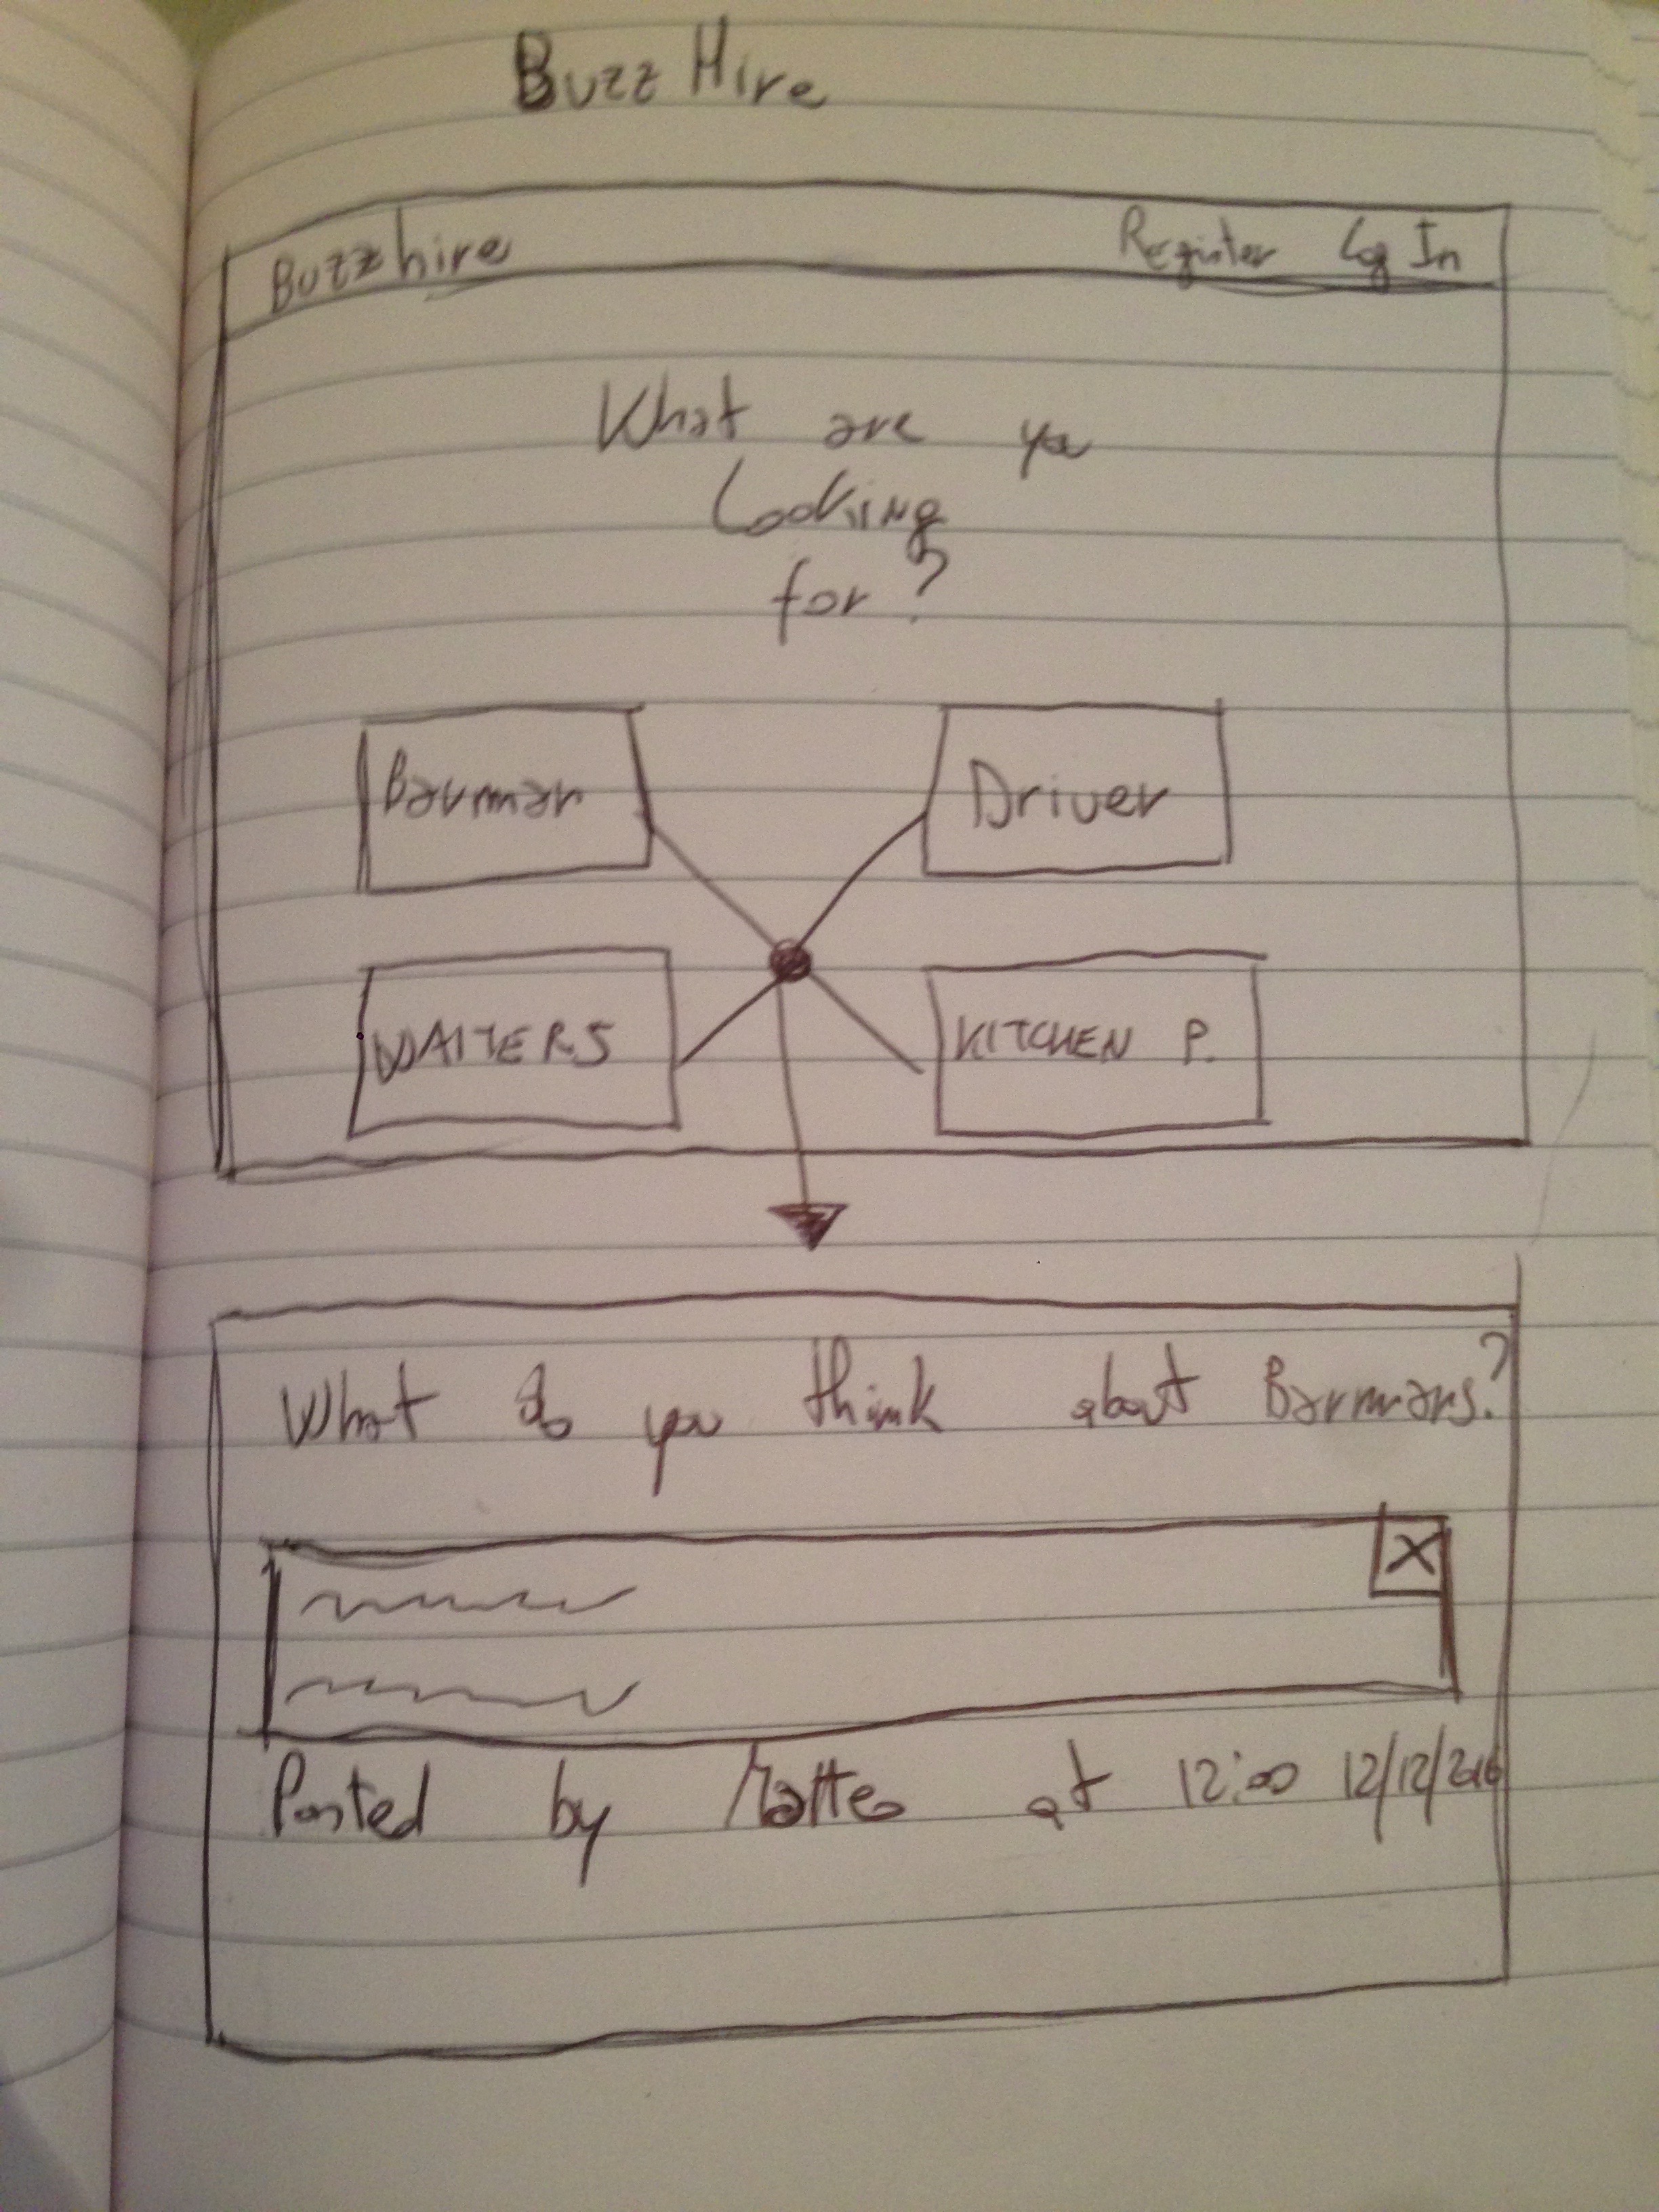 Buzz Hire
Buzzhire Register Log In
What are you
Looking
for?
Barman Driver
WAITERS KITCHEN P.
What do you think about Barmans?
X
Posted by Matteo at 12:00 12/12/2016